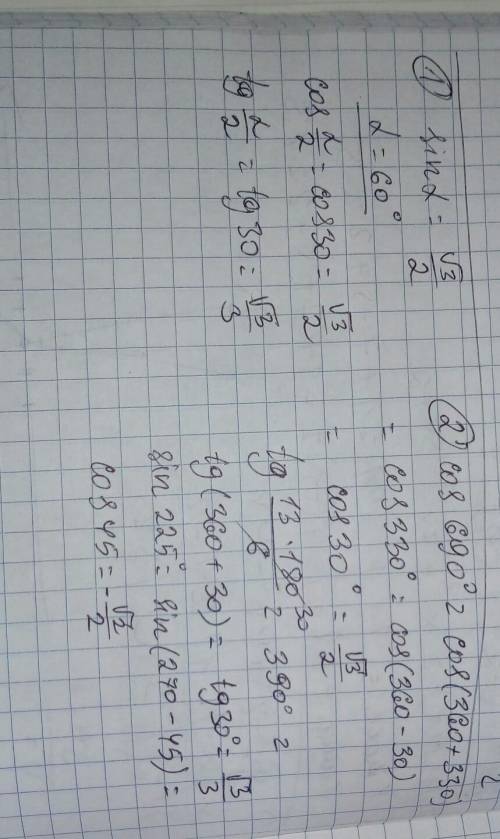 ① sinα = √3/2
α = 60°
cos α/2 = cos30 = √3/2
tg α/2 = tg 30 = √3/3
② cos 690° = cos(360+330)
= cos330° = cos(360-30)
= cos30° = √3/2
tg 13·180/6 30 = 390° =
tg(360+30) = tg30° = √3/3
sin 225° = sin(270-45) =
cos 45 = -√2/2